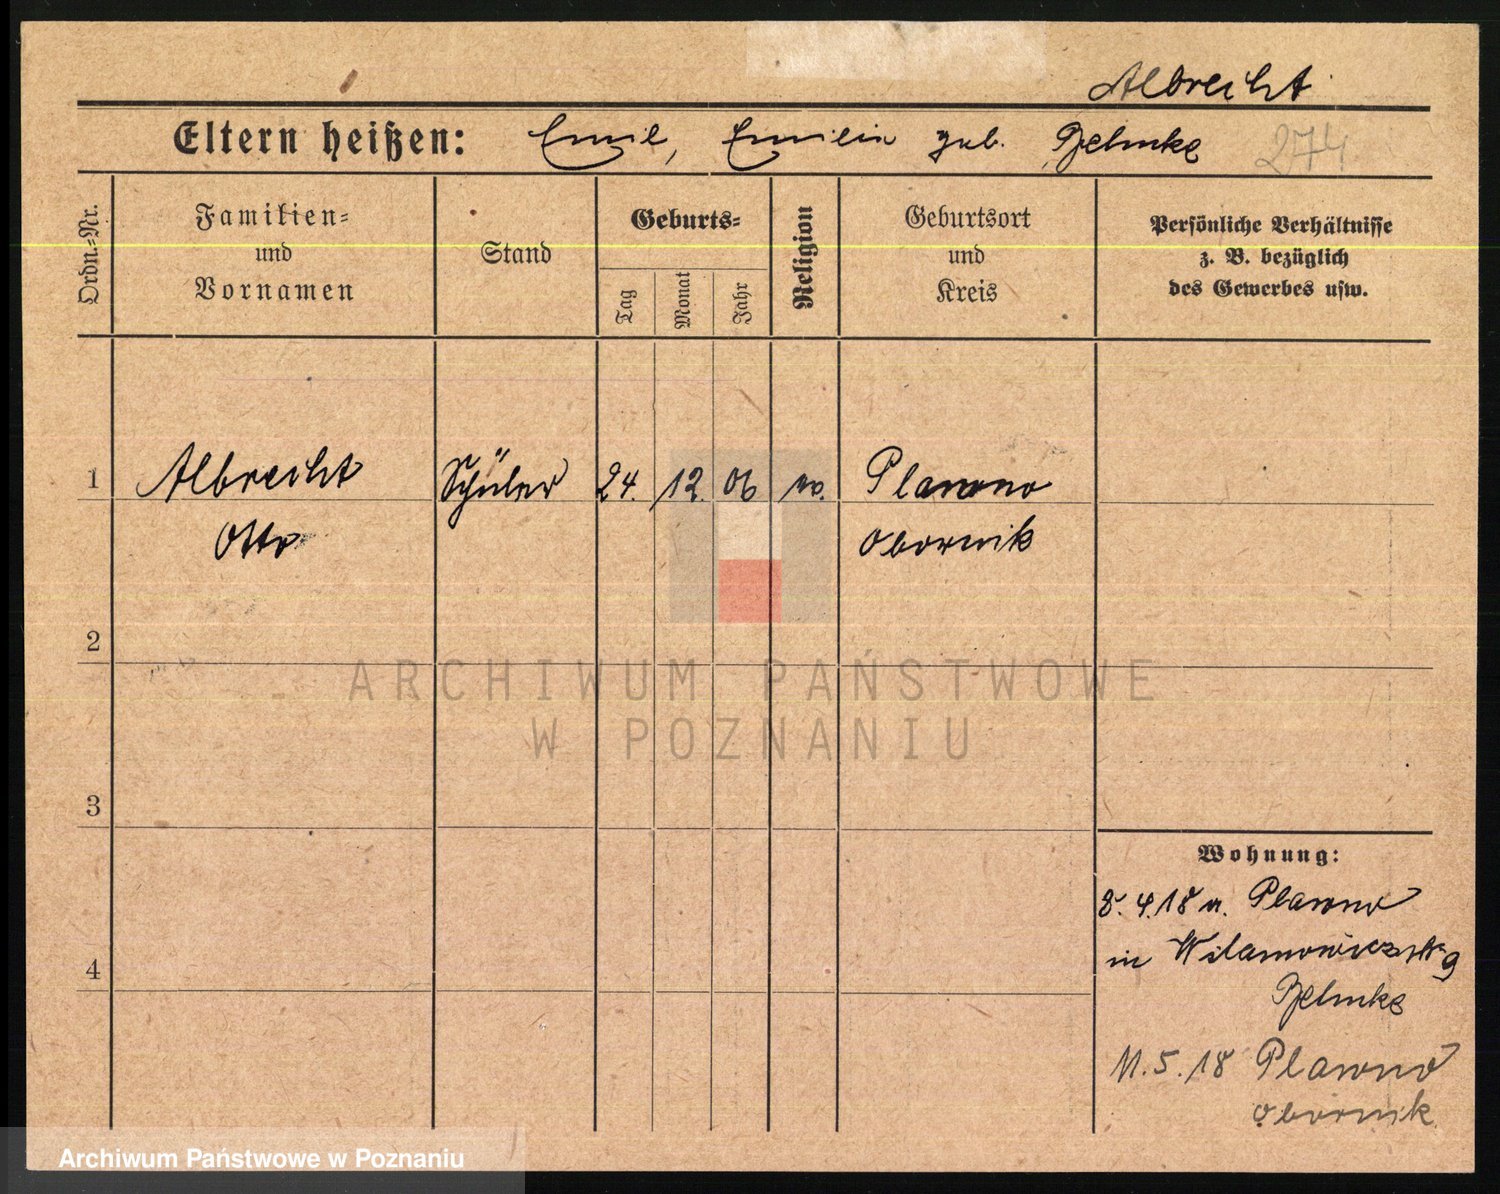 Albrecht
Eltern heißen: Emil, Emilie geb. Behmke 274
Ordn.-Nr.
Familien-
und
Vornamen
Stand
Geburts-
Tag
Monat
Jahr
Religion
Geburtsort
und
Kreis
Persönliche Verhältnisse
z. B. bezüglich
des Gewerbes usw.
1 Albrecht Schüler 24. 12. 06 ev. Plawno
Otto Obornik
2
ARCHIWUM PAŃSTWOWE
W POZNANIU
3
Wohnung:
8.4.18 v. Plawno
in Wilamowiczstr 9
4
Behmke
11.5.18 Plawno
Obornik
Archiwum Państwowe w Poznaniu